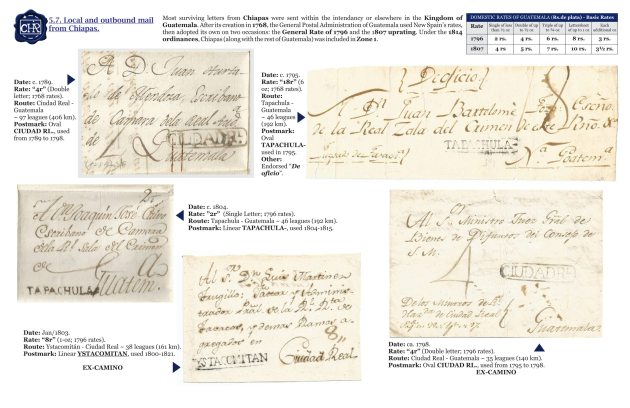 CHR
5.7. Local and outbound mail
from Chiapas.
Most surviving letters from Chiapas were sent within the intendancy or elsewhere in the Kingdom of
Guatemala. After its creation in 1768, the General Postal Administration of Guatemala used New Spain's rates,
then adopted its own on two occasions: the General Rate of 1796 and the 1807 uprating. Under the 1814
ordinances, Chiapas (along with the rest of Guatemala) was included in Zone 1.
DOMESTIC RATES OF GUATEMALA (Rs.de plata) - Basic Rates
Rate Single of less than ½ oz Double of up to ½ oz Triple of up to ¾ oz Lettersheet of up to 1 oz Each additional oz
1796 2 rs. 4 rs. 6 rs. 8 rs. 3 rs.
1807 4 rs. 5 rs. 7 rs. 10 rs. 3½ rs.
Date: c. 1789.
Rate: "4r" (Double
Letter; 1768 rates).
Route: Ciudad Real -
Guatemala
~ 97 leagues (406 km).
Postmark: Oval
CIUDAD RL., used
from 1789 to 1798.
A D Juan
de Mendoza, Escribano
de Camara dela Real
de
CIUDAD RL
Guatemala
Date: c. 1795.
Rate: "18r" (6
oz; 1768 rates).
Route:
Tapachula -
Guatemala
~ 46 leagues
(192 km).
Postmark:
Oval
TAPACHULA-
used in 1795.
Other:
Endorsed "De
oficio".
De oficio
A Dn Juan Bartolomé
de la Real Sala del Crimen de este
TAPACHULA
Date: c. 1804.
Rate: "2r" (Single Letter; 1796 rates).
Route: Tapachula - Guatemala ~ 46 leagues (192 km).
Postmark: Linear TAPACHULA-, used 1804-1815.
2r
Joaquin José
Escribano de Camara
de la Rl Sala del Crimen
de
TAPACHULA
Guatem.
Date: Jan/1803.
Rate: "8r" (1-oz; 1796 rates).
Route: Ystacomitán - Ciudad Real ~ 38 leagues (161 km).
Postmark: Linear YSTACOMITAN, used 1800-1821.
EX-CAMINO
Al Sr Dn Luis Martinez
y Adminis-
trador
y demas Ramos a-
gregados en
8
YSTACOMITAN
Ciudad Real
Al Sr Ministro Juez Gral de
Bienes de Difuntos del Consejo de
S. M.
4
CIUDAD RL
De los Ministros de Rl
Hazda de Ciudad Real
Guatemala
Date: ca. 1798.
Rate: "4r" (Double letter; 1796 rates).
Route: Ciudad Real - Guatemala ~ 35 leagues (140 km).
Postmark: Oval CIUDAD RL., used from 1795 to 1798.
EX-CAMINO